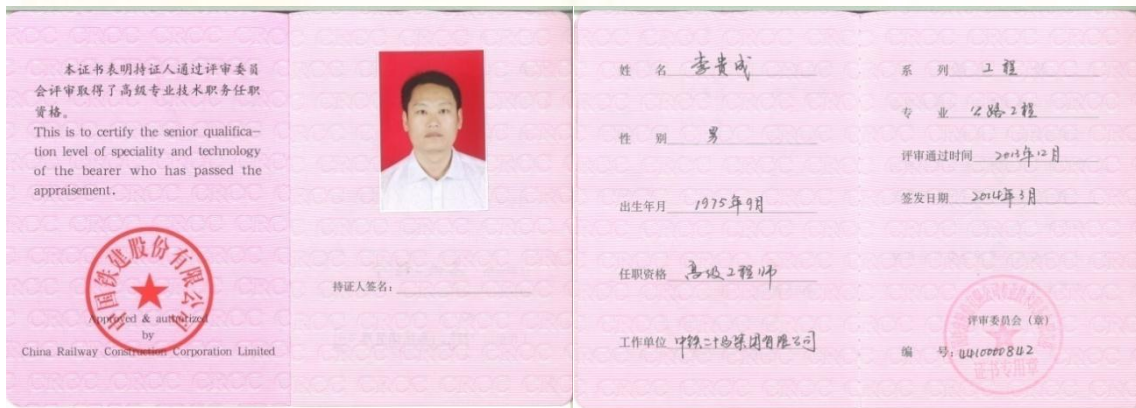 本证书表明持证人通过评审委员
会评审取得了高级专业技术职务任职
资格。
This is to certify the senior qualifica-
tion level of speciality and technology
of the bearer who has passed the
appraisement.
中国铁建股份有限公司
Approved & authorized
by
China Railway Construction Corporation Limited
持证人签名：
姓 名 李贵成
性 别 男
出生年月 1975年9月
任职资格 高级工程师
工作单位 中铁二十局集团有限公司
系 列 工程
专 业 公路工程
评审通过时间 2013年12月
签发日期 2014年3月
评审委员会（章）
编 号：44100000842
证书专用章